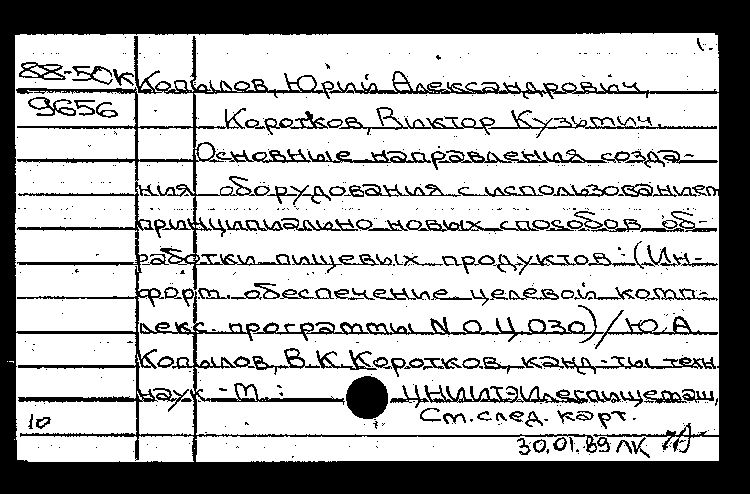 1.
88-50К Копылов, Юрий Александрович,
9656 Коротков, Виктор Кузьмич.
Основные направления созда-
ния оборудования с использованием
принципиально новых способов об-
работки пищевых продуктов: (Ин-
форм. обеспечение целевой комп-
лекс. программы N О.Ц.030) / Ю.А.
Копылов, В.К. Коротков, канд-ты техн.
наук. - М.: ЦНИИТЭИлегпищемаш,
См. след. карт.
10
30.01.89 ЛК